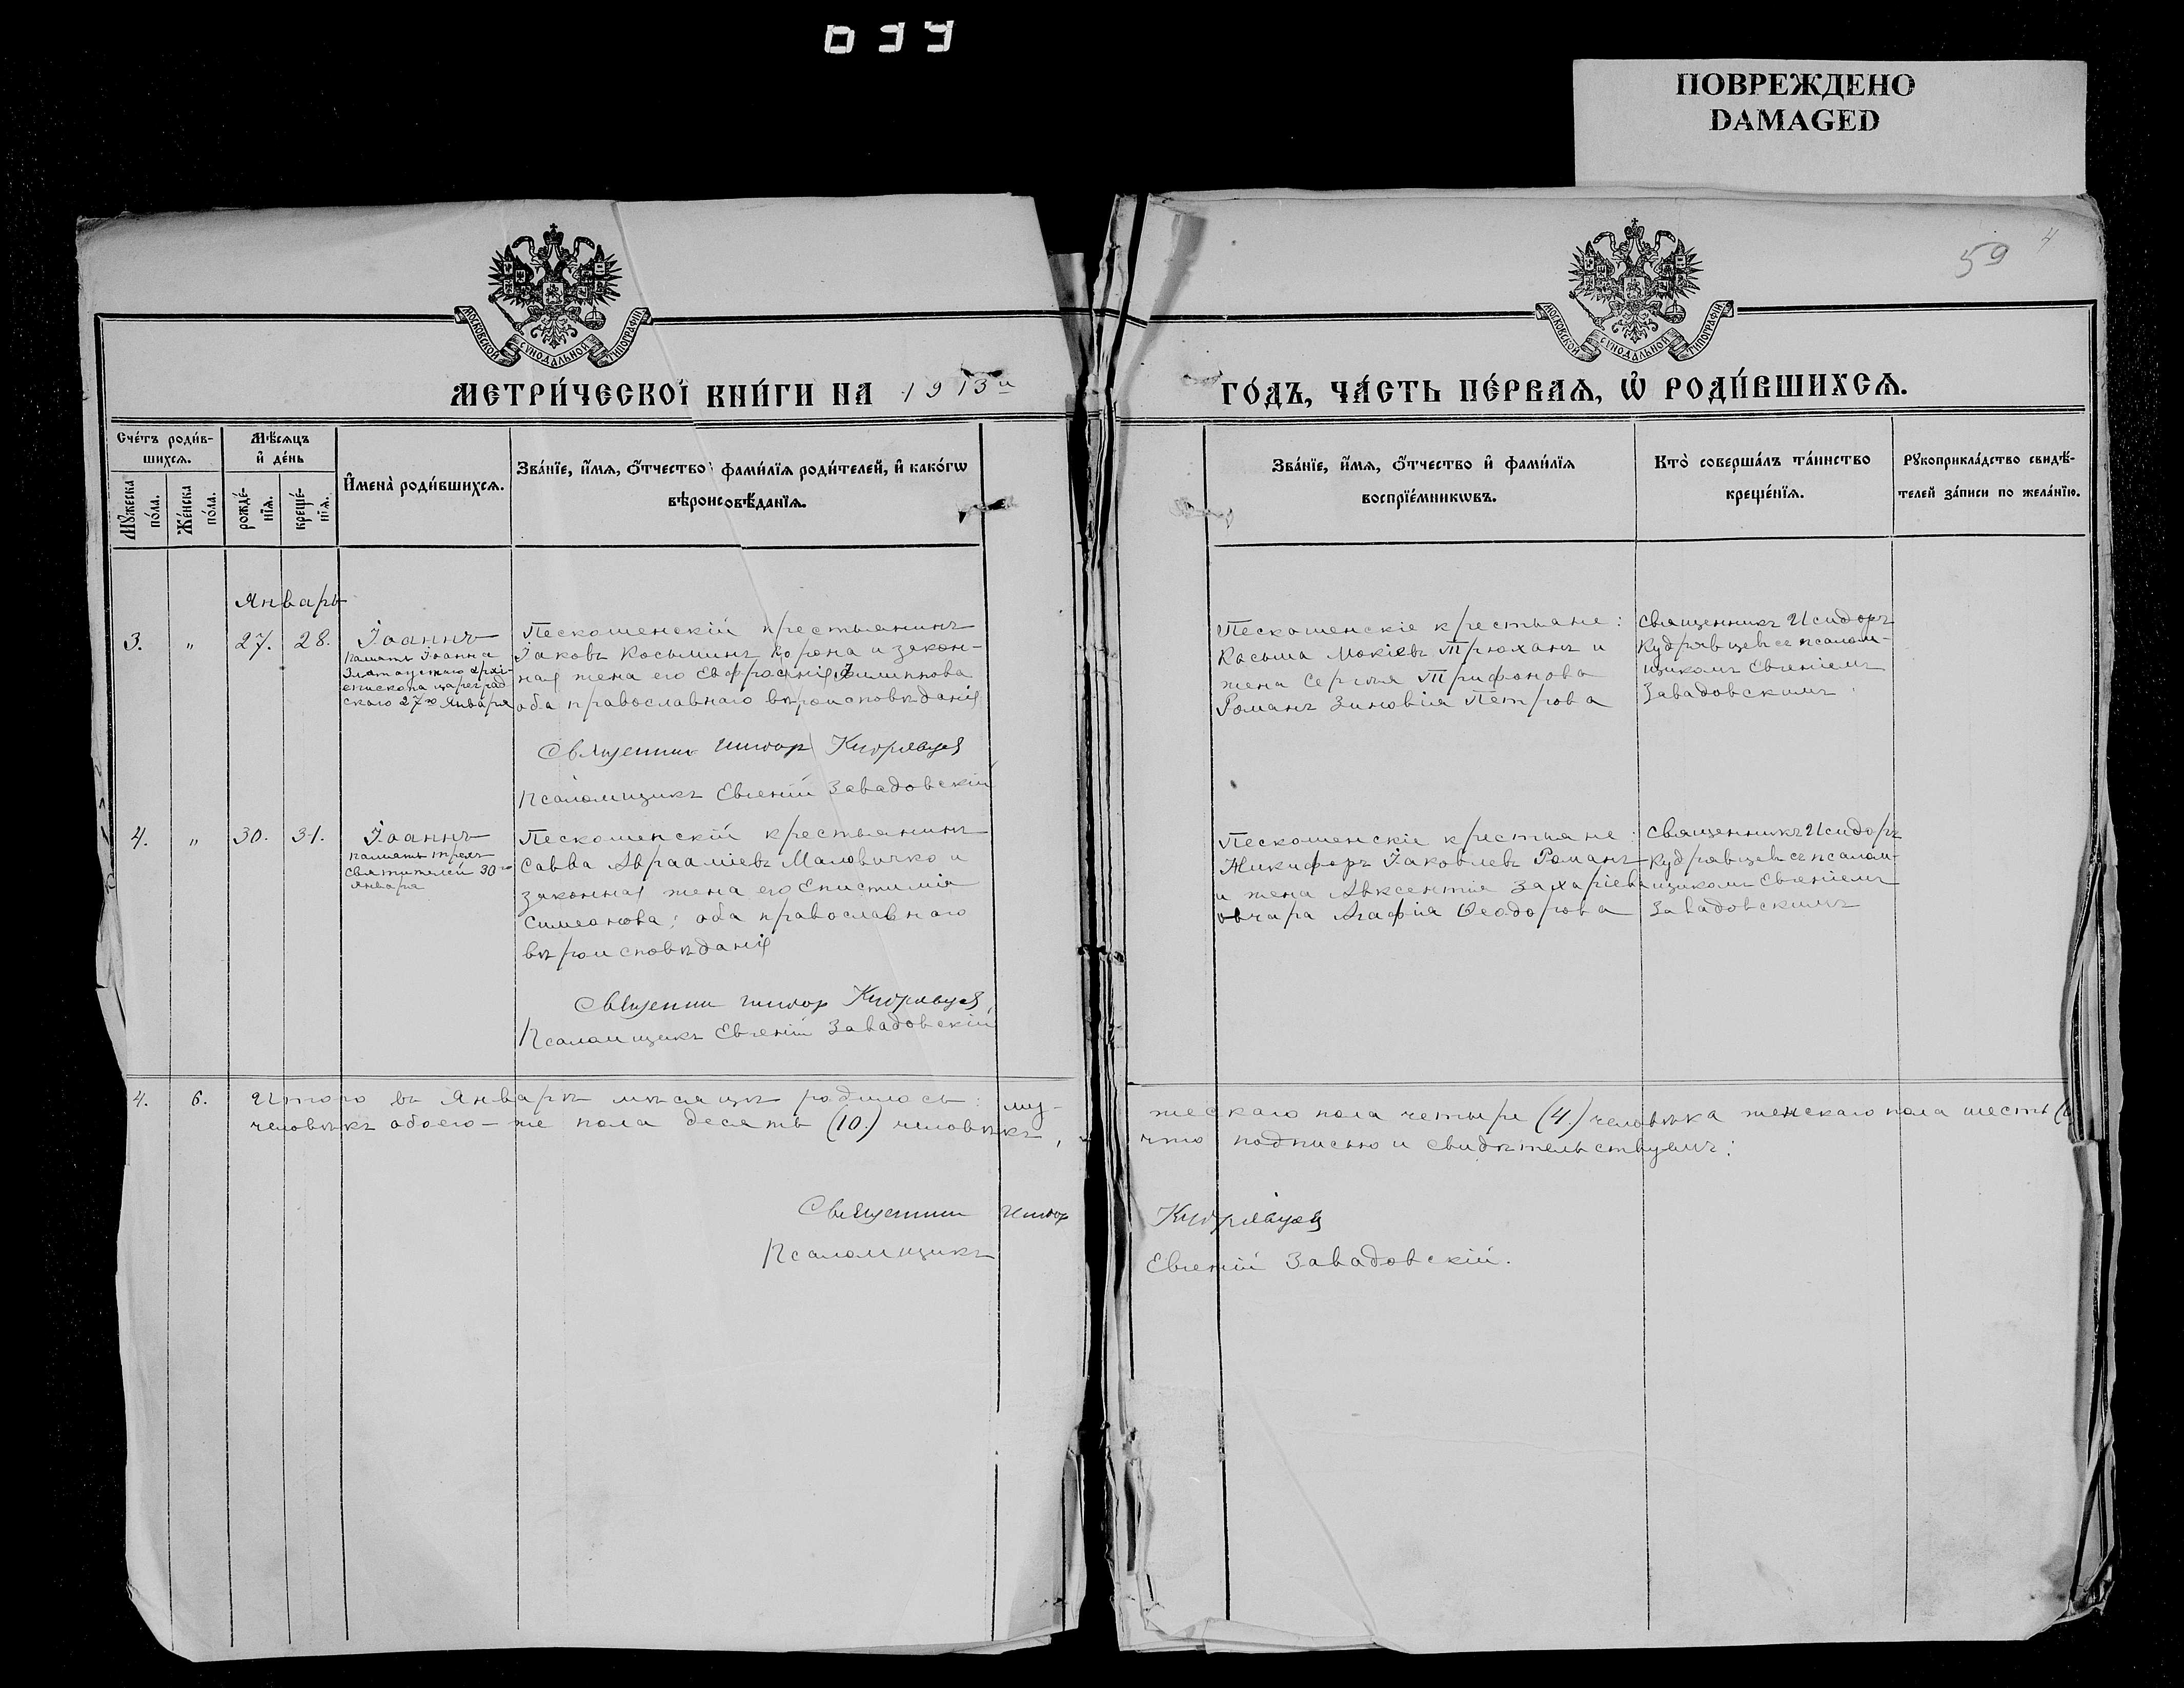 ПОВРЕЖДЕНО
DAMAGED
59 4
МОСКОВСКОЙ СѴНОДАЛЬНОЙ ТИПОГРАФІИ
МОСКОВСКОЙ СѴНОДАЛЬНОЙ ТИПОГРАФІИ
МЕТРИ́ЧЕСКОЙ КНИ́ГИ НА 1913й ГО́ДЪ, ЧА́СТЬ ПЕ́РВАѦ, Ѡ РОДИ́ВШИХСѦ.
Сче́тъ роди́в-
шихсѧ.
Мꙋ́жеска по́ла.
Же́нска по́ла.
Мѣ́сѧцъ
и҆ де́нь
рожде́-
нїѧ.
креще́-
нїѧ.
И҆мена̀ роди́вшихсѧ.
Зва́нїе, и҆́мѧ, ѻ҆́тчество и҆ фами́лїѧ роди́телей, и҆ како́гѡ
вѣроисповѣ́данїѧ.
Зва́нїе, и҆́мѧ, ѻ҆́тчество и҆ фами́лїѧ
воспрїе́мникѡвъ.
Кто̀ соверша́лъ та́инство
креще́нїѧ.
Рꙋкоприкла́дство свидѣ́-
телей за́писи по жела́нїю.
Январь
3. " 27. 28.
Іоаннъ
память Іоанна
Златоустаго архі-
епископа цареград
скаго 27го Января
Пескошенскій крестьянинъ
Іаковъ Косьминъ и закон-
ная жена его Евфросинія Филиппова
оба православнаго вѣроисповѣданія
Священник Исидор Кудрявцев
Псаломщикъ Евгеній Завадовскій
Пескошенскіе крестьане:
Косьма Мокіевъ Трюханъ и
жена Сергѣя Трифонова
Романъ Зиновія Петрова
Священникъ Исидоръ
Кудрявцевъ с псалом-
щикомъ Евгеніемъ
Завадовскимъ.
4. " 30. 31.
Іоаннъ
память трехъ
святителей 30го
января
Пескошенскій крестьянинъ
Савва Авраамiевъ Маловичко и
законная жена его Епистимія
Симеонова; оба православнаго
вѣроисповѣданія
Священник Исидор Кудрявцев
Псаломщикъ Евгеній Завадовскій
Пескошенскіе крестьяне:
Никифоръ Іаковлевъ Романъ
и жена Авксентія Захаріева
овчара Агафія Ѳеодорова
Священникъ Исидоръ
Кудрявцевъ с псалом-
щикомъ Евгеніемъ
Завадовскимъ
4. 6. Итого въ Январѣ мѣсяцѣ родилось: му- жескаго пола четыре (4.) человѣка женскаго пола шесть (6
человѣкъ обоего-же пола десять (10.) человѣкъ, что подписью и свидѣтельствуемъ:
Священник Исидор Кудрявцев
Псаломщикъ Евгеній Завадовскій.